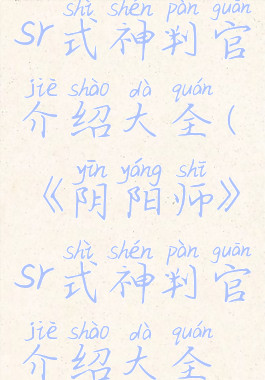 shì shén pàn guān
sr式神判官
jiè shào dà quán
介绍大全(
yīn yáng shī
《阴阳师》
shì shén pàn guān
sr式神判官
jiè shào dà quán
介绍大全